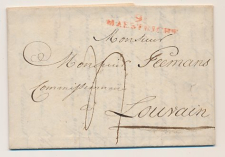 9
MAESTRICHT
Monsieur
Monsieur Feemans
Commissionnaire
à
Louvain